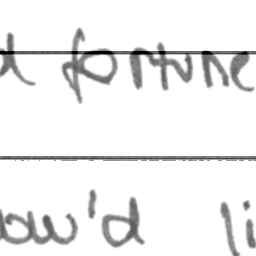 fortune
ow'd li